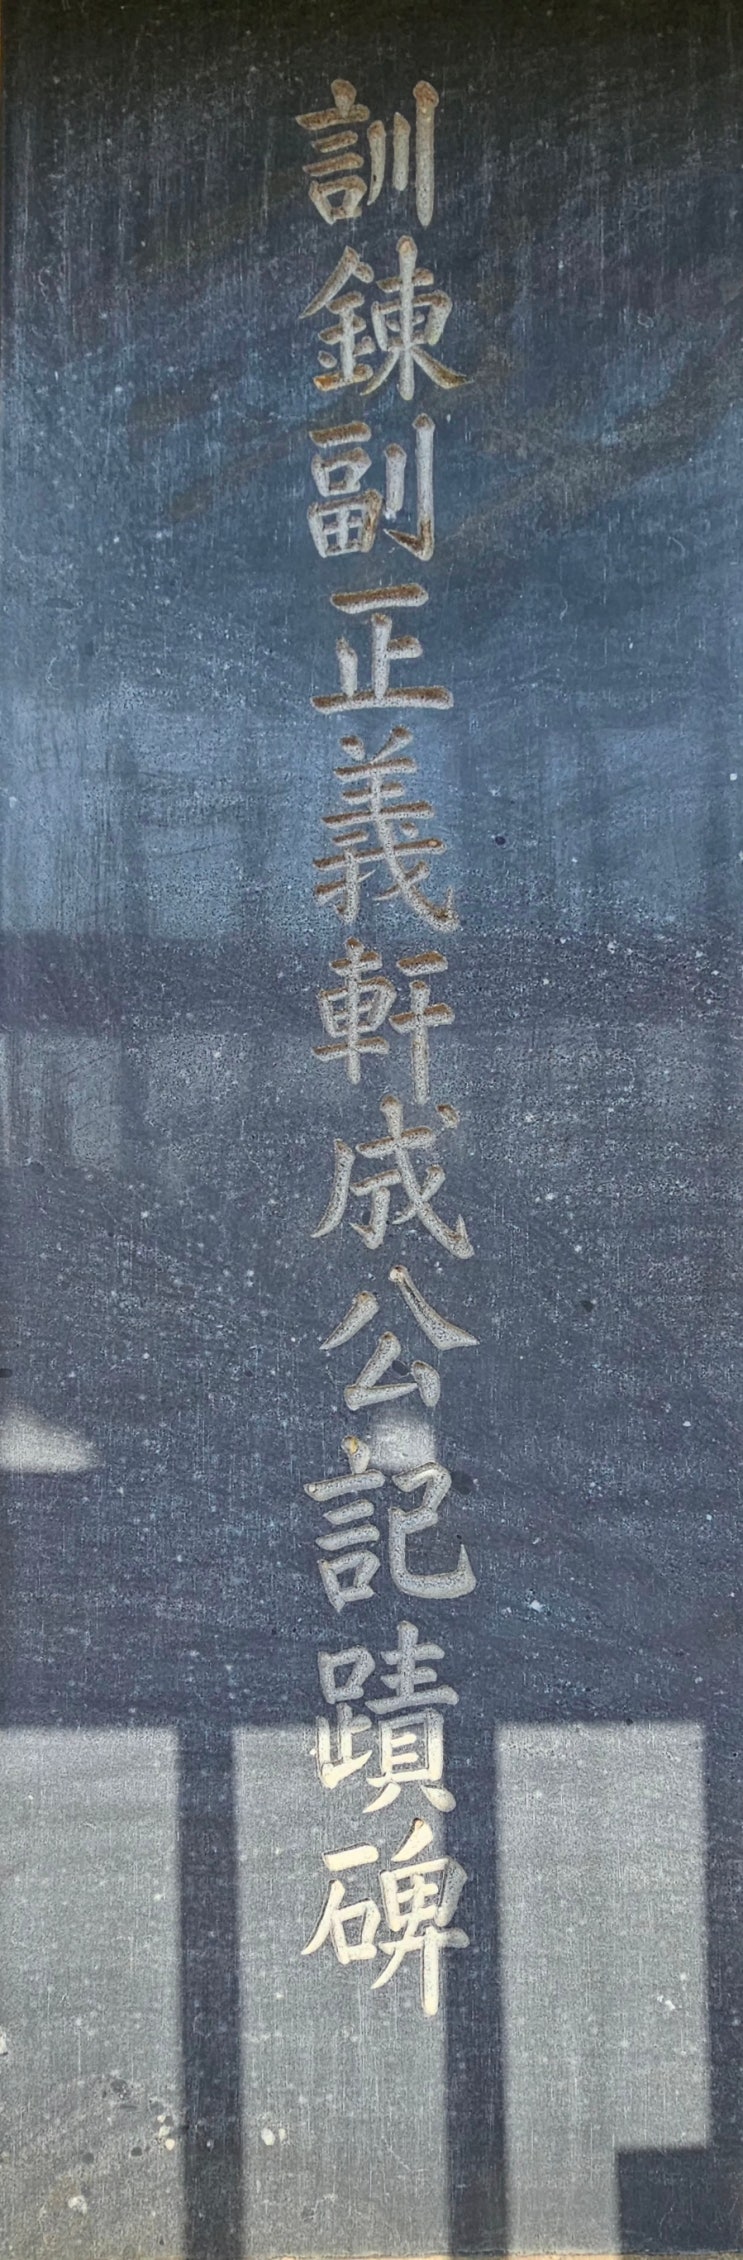 訓鍊副正義軒成公記蹟碑